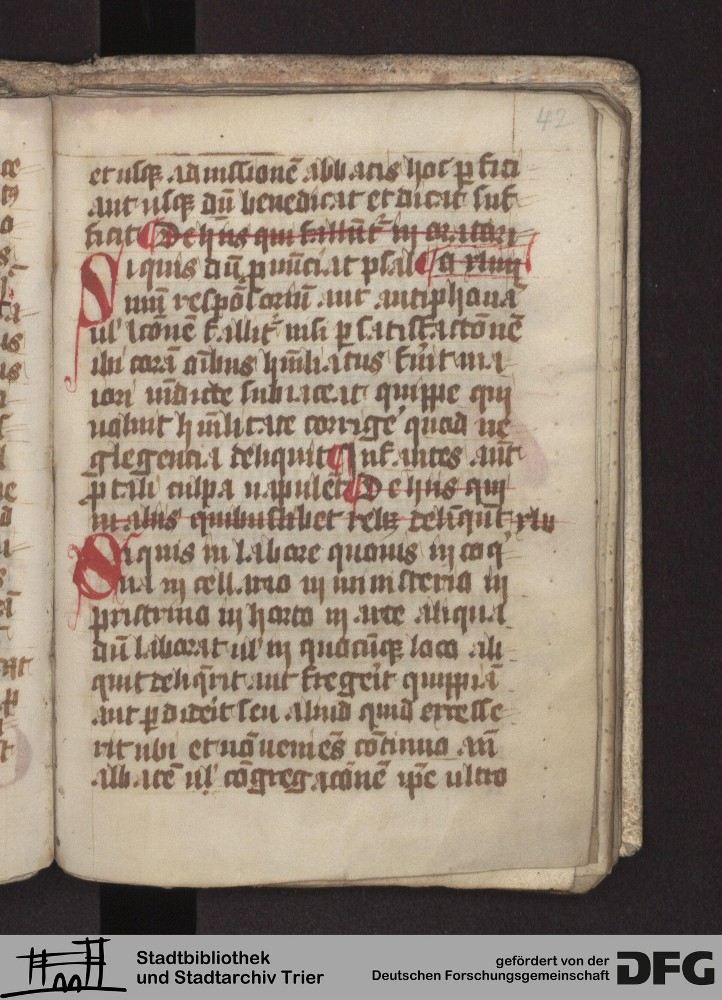 42
et usq; ad iussionē abbatis hoc p̄ficiat
aut usq; dū benedicat et dicat suf
ficit De hijs qui fallūt̄ in oratori
Si quis dū p̄nūciat psal o xlv
mū respōsoriū aut antiphonā
ul' lcōnē fallit̄ nisi p satisfactōnē
ibi corā oībus hūiliatus fūit ma
iori uīdicte subiaceat quippe qui
noluit hūilitate corrige' quod ne
glegencia deliquit Infantes aūt
p tali culpa uapulēt De hijs qui
in alijs quibuslibet reb; delīqūt xlvi
Si quis in labore quouis in coq'
na in cellario in ministerio in
pristrino in horto in arte aliqua
dū laborat ul' in quocūq; loco ali
quit deliq̄rit aut fregerit quippiā
aut pdiderit seu aliud quid excesse
rit ubi et nō ueniēs cōtinuo añ
abbatē ul' cōgregacōnē ip̄e ultro
Stadtbibliothek
und Stadtarchiv Trier
gefördert von der
Deutschen Forschungsgemeinschaft
DFG